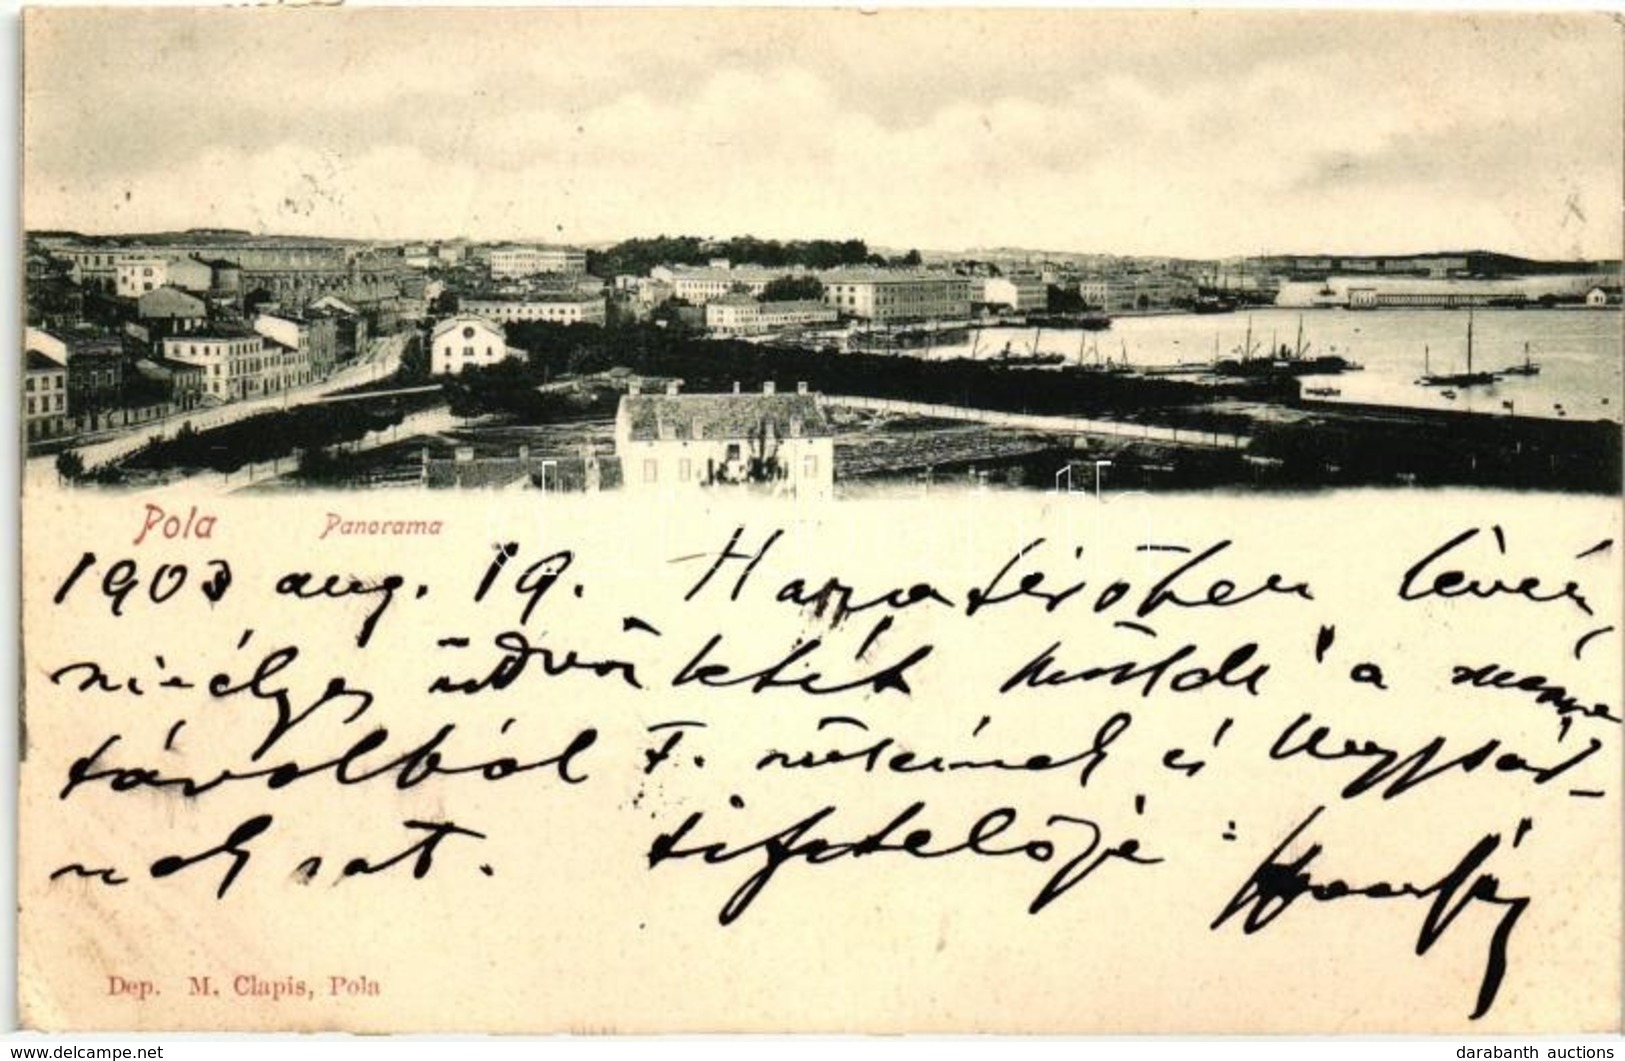 Pola Panorama
1903 aug. 19. Hazatérőben lévén,
szívélyes üdvözletét küldi a messze
távolból F. szüleinek és
nak sat. tisztelője:
Dep. M. Clapis, Pola
www.delcampe.net
darabanth auctions